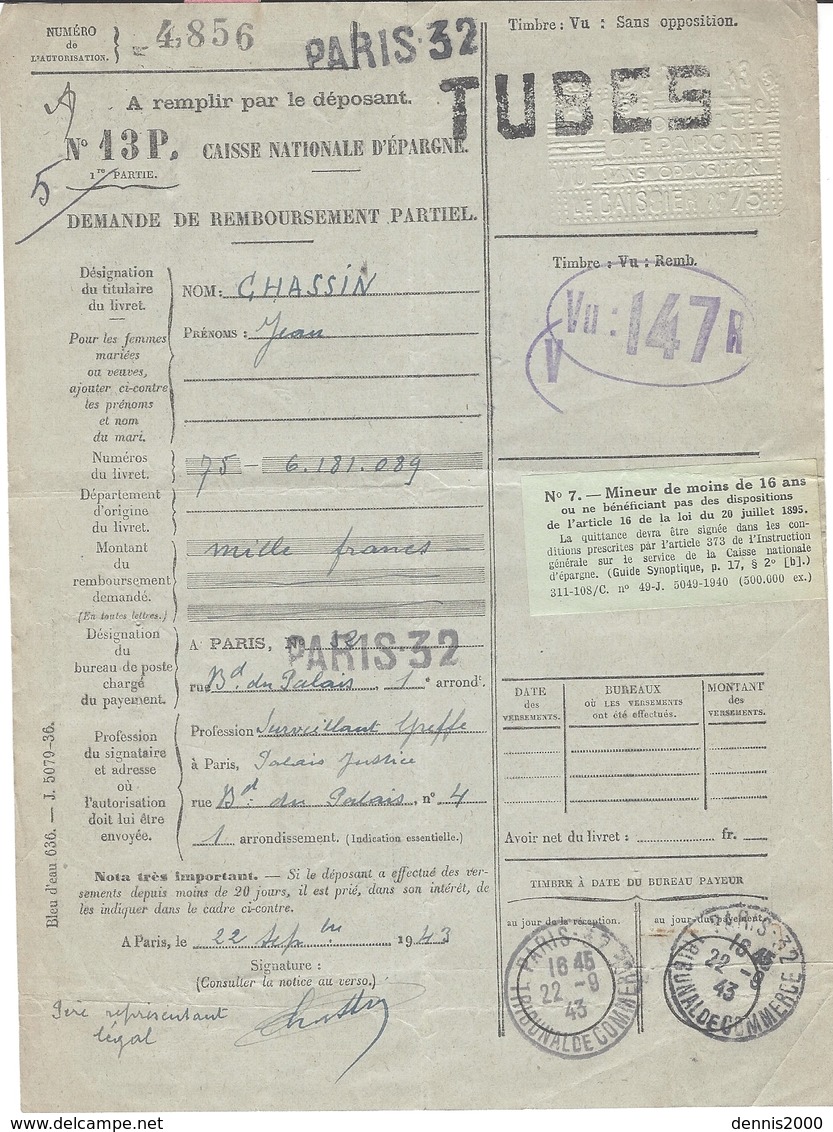 NUMÉRO
de
L'AUTORISATION.
4,856
PARIS-32
TUBES
Timbre : Vu : Sans opposition.
A remplir par le déposant.
N° 13 P.
1re PARTIE.
5
CAISSE NATIONALE D'ÉPARGNE.
D'EPARGNE
VU SANS OPPOSITION
LE CAISSIER N° 75
DEMANDE DE REMBOURSEMENT PARTIEL.
Timbre : Vu : Remb.
Vu : 147 R
V
Désignation
du titulaire
du livret.
NOM : CHASSIN
PRÉNOMS : Jean
Pour les femmes
mariées
ou veuves,
ajouter ci-contre
les prénoms
et nom
du mari.
Numéros
du livret.
75 - 6.181.089
Département
d'origine
du livret.
Montant
du
remboursement
demandé.
(En toutes lettres.)
mille francs
N° 7. — Mineur de moins de 16 ans
ou ne bénéficiant pas des dispositions
de l'article 16 de la loi du 20 juillet 1895.
La quittance devra être signée dans les con-
ditions prescrites par l'article 373 de l'Instruction
générale sur le service de la Caisse nationale
d'épargne. (Guide Synoptique, p. 17, § 2° [b].)
311-108/C. n° 49-J. 5049-1940 (500.000 ex.)
Désignation
du
bureau de poste
chargé
du payement.
A PARIS, N° 32
PARIS-32
rue Bd du Palais, 1e arrondt.
Profession
du signataire
et adresse
où
l'autorisation
doit lui être
envoyée.
Profession Surveillant Greffe
à Paris, Palais Justice
rue Bd du Palais, n° 4
1 arrondissement. (Indication essentielle.)
DATE
des
VERSEMENTS.
BUREAUX
OÙ LES VERSEMENTS
ont été effectués.
MONTANT
des
VERSEMENTS.
Avoir net du livret : fr.
Bleu d'eau 636. — J. 5079-36.
Nota très important. — Si le déposant a effectué des ver-
sements depuis moins de 20 jours, il est prié, dans son intérêt, de
les indiquer dans le cadre ci-contre.
A Paris, le 22 Sepbre 1943
Signature :
(Consulter la notice au verso.)
Père représentant
légal
TIMBRE À DATE DU BUREAU PAYEUR
au jour de la réception.
au jour du payement.
PARIS-32
16 45
22 -9
43
TRIBUNAL DE COMMERCE
PARIS-32
16 45
22 -9
43
TRIBUNAL DE COMMERCE
delcampe.net
dennis2000